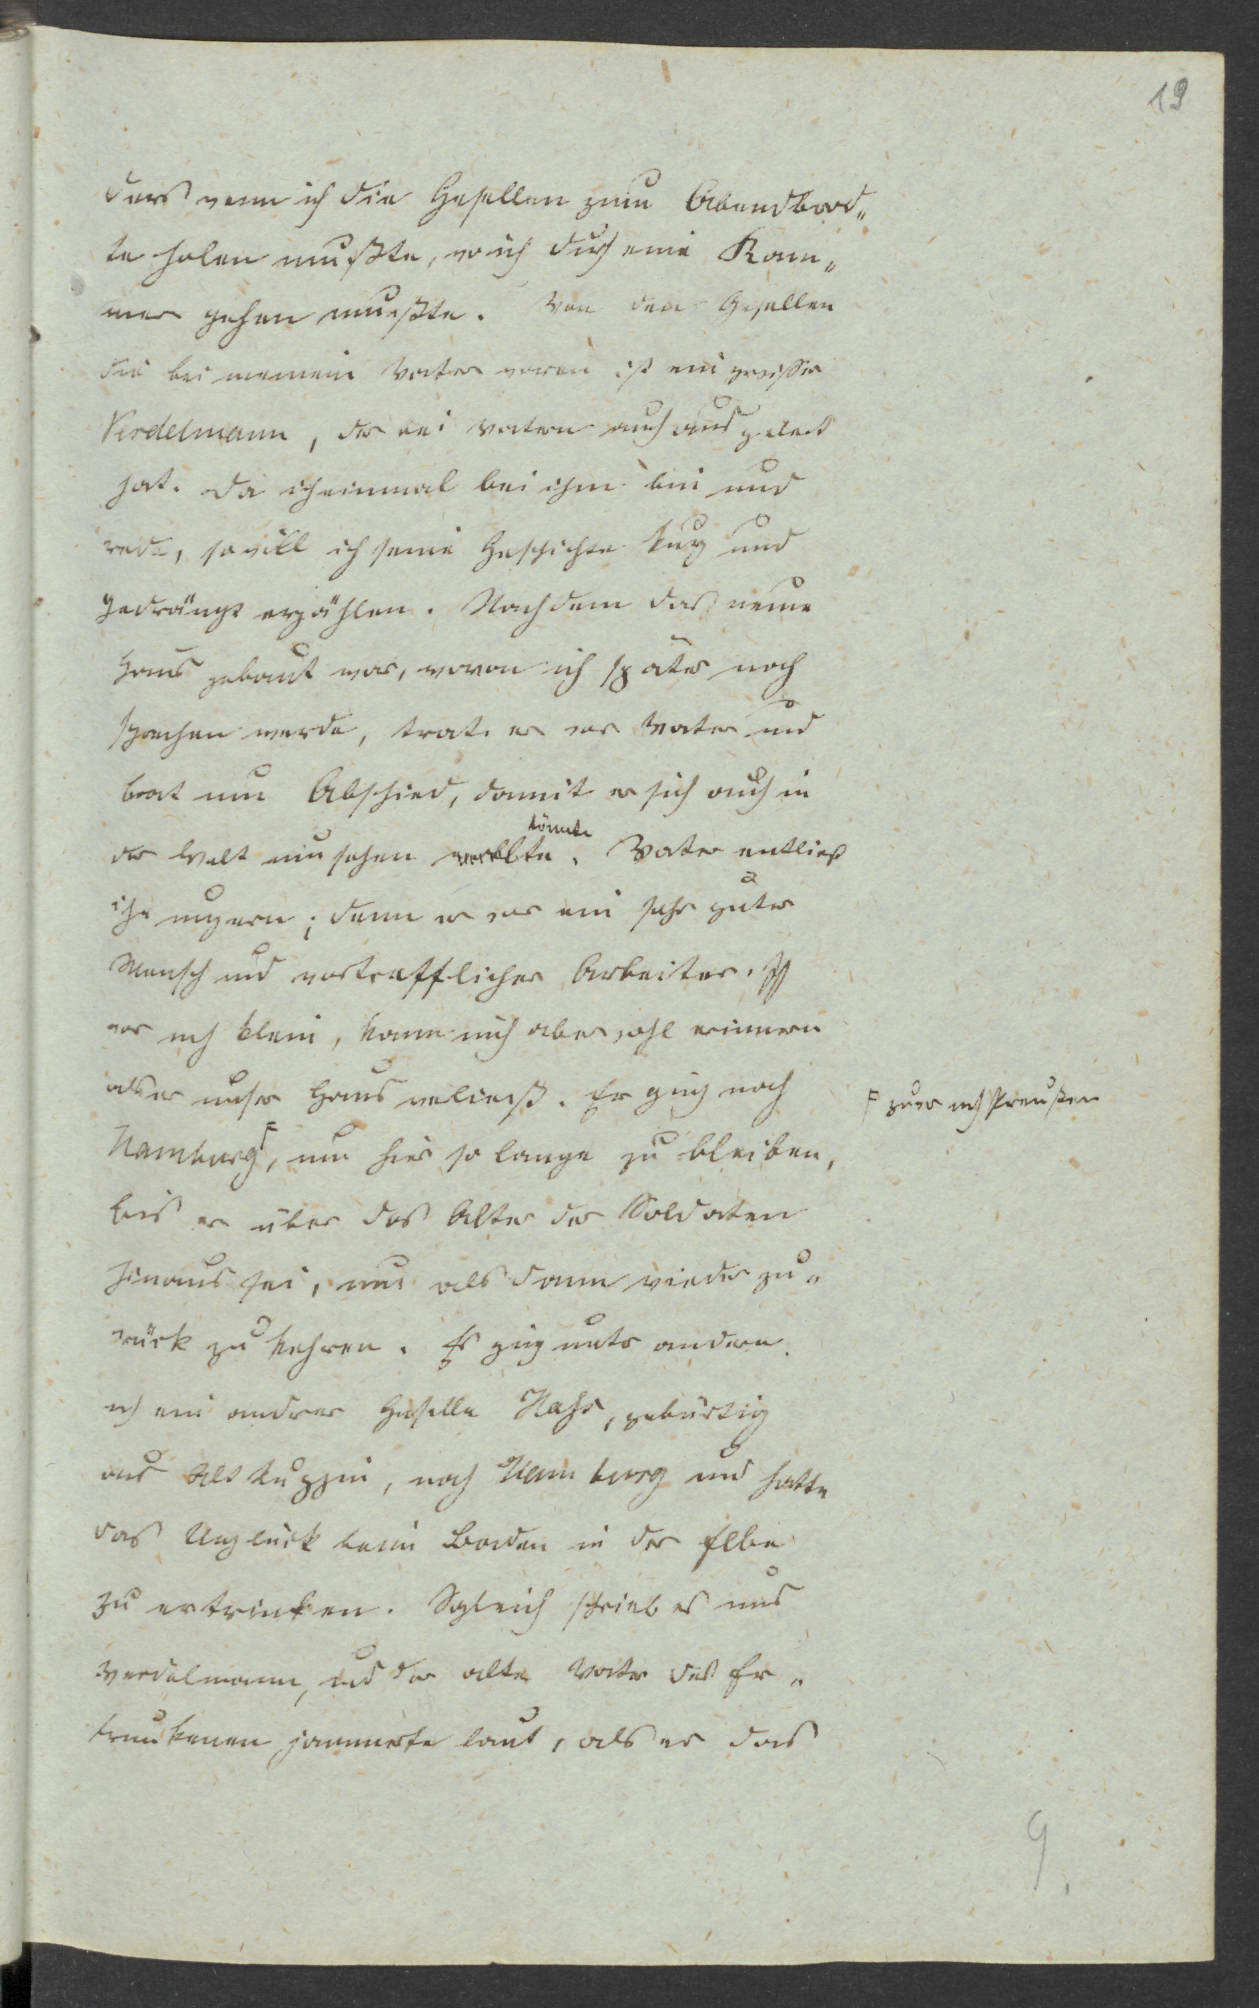 19
ders wenn ich die Gesellen zum Abendbrod„
te holen mußte, wo ich durch eine Kam„
mer gehen mußte. Von den Gesellen
die bei meinem Vater waren ist ein gewisser
Verdelmann, der bei Vatern auch ausgelernt
hat. Da ich einmal bei ihm bin und
rede, so will ich seine Geschichte kurz und
gedrängt erzählen. Nachdem das neue
Haus gebaut war, wovon ich später noch
sprechen werde, trat er vor Vater und
bat um Abschied, damit er sich auch in
der Welt umsehen könnte. Vater entließ
ihn ungern; denn er war ein sehr guter
Mensch und vortrefflicher Arbeiter. Ich
war noch klein, kann mich aber wohl erinnern
als er unser Haus verließ. Er ging nach
Hamburg F, um hier so lange zu bleiben,
F zwar nach Preußen
bis er über das Alter der Soldaten
hinaus sei, und als dann wieder zu„
rück zu kehren. Es ging unter andern
noch ein andrer Geselle Hahs, gebürtig
aus Alt Ruppin, nach Hamburg und hatte
das Unglück beim Baden in der Elbe
zu ertrinken. Sogleich schrieb es uns
Verdelmann, und der alte Vater des Er„
trunkenen jammerte laut, als er das
9.